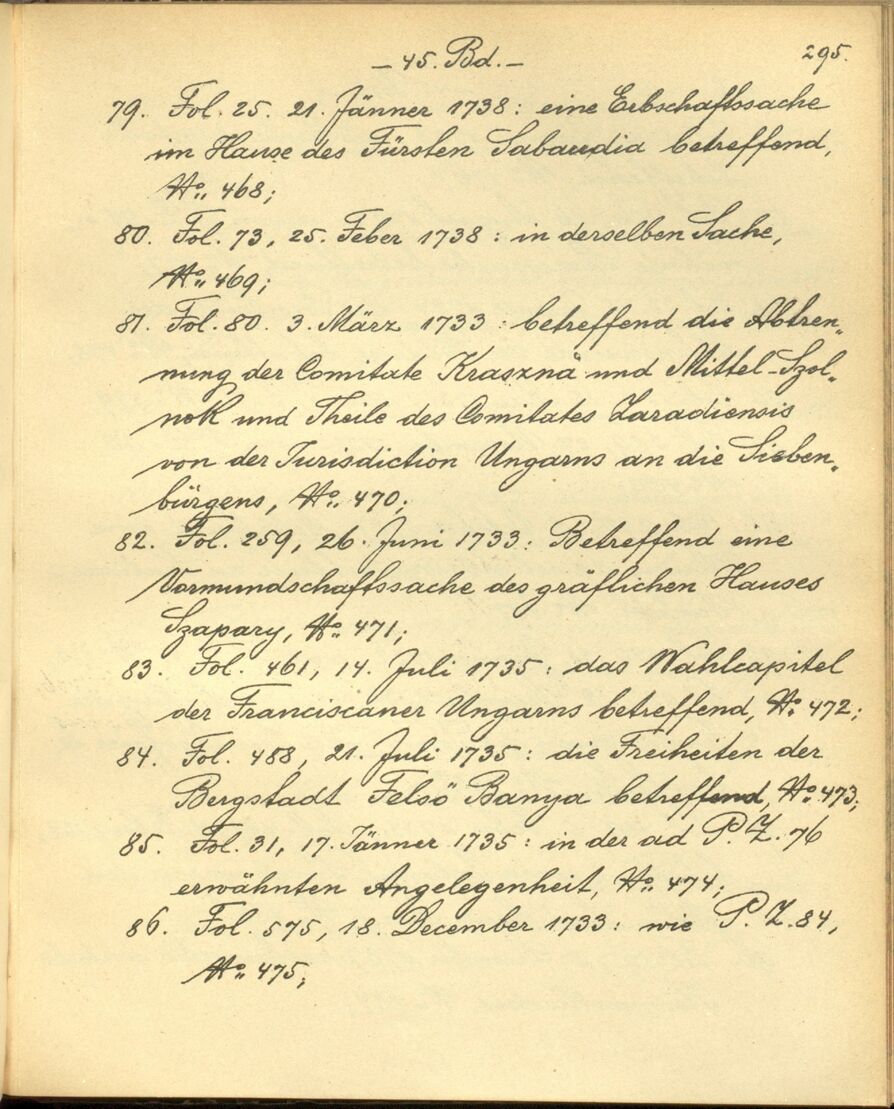 – 45. Bd. –
295.
79. Fol. 25. 21. Jänner 1738: eine Erbschaftssache
im Hause des Fürsten Sabaudia betreffend,
No. 468;
80. Fol. 73, 25. Feber 1738: in derselben Sache,
No. 469;
81. Fol. 80. 3. März 1733: betreffend die Abtren„
nung der Comitate Krasznä und Mittel-Szol„
nok und Theile des Comitates Zaradiensis
von der Jurisdiction Ungarns an die Sieben„
bürgens, No. 470;
82. Fol. 259, 26. Juni 1733: Betreffend eine
Vormundschaftssache des gräflichen Hauses
Szapary, No. 471;
83. Fol. 461, 14. Juli 1735: das Wahlcapitel
der Franciscaner Ungarns betreffend, No. 472;
84. Fol. 488, 21. Juli 1735: die Freiheiten der
Bergstadt Felsö Banya betreffend, No. 473;
85. Fol. 31, 17. Jänner 1735: in der ad P. Z. 76
erwähnten Angelegenheit, No. 474;
86. Fol. 575, 18. December 1733: wie P. Z. 84,
No. 475;